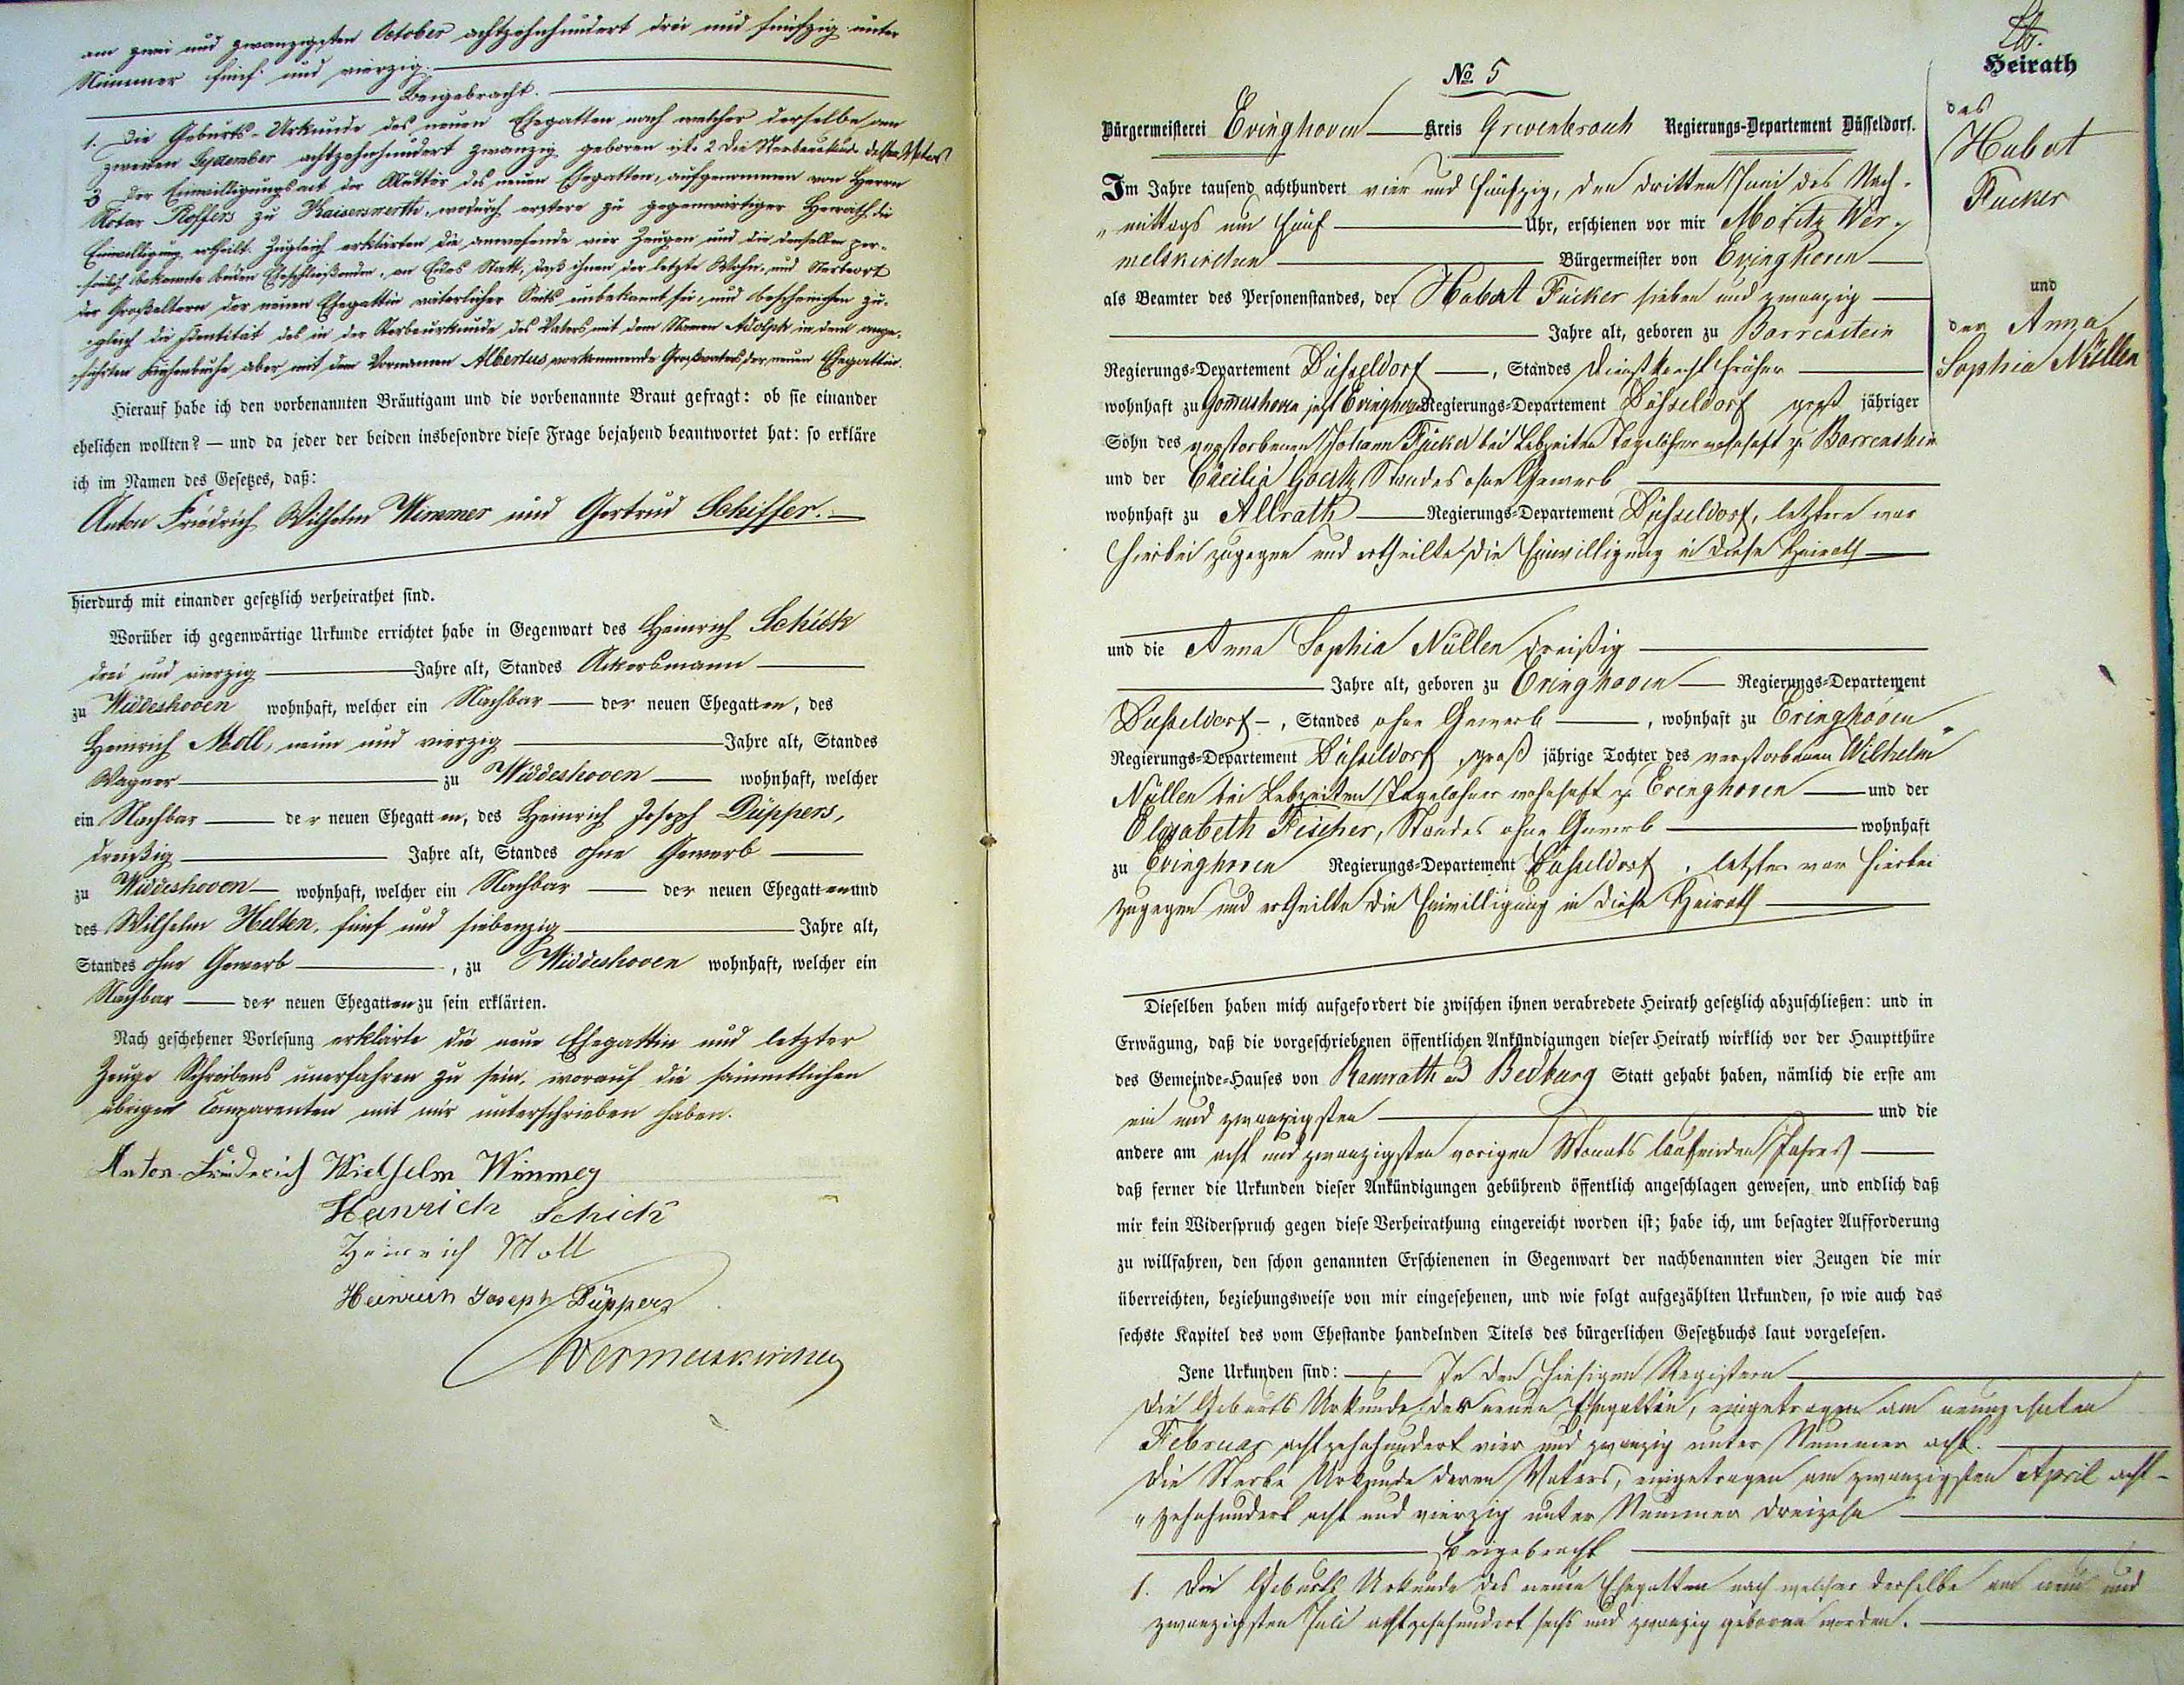 am zwei und zwanzigsten October achtzehnhundert drei und fünfzig unter
Nummer fünf und vierzig.
Beigebracht.
1. Die Geburts-Urkunde des neuen Ehegatten nach welcher derselbe am
zweiten September achtzehnhundert zwanzig geboren ist. 2 Die Sterbeurkunde dessen Vaters
3 Der Einwilligungsact der Mutter des neuen Ehegatten, aufgenommen von Herrn
Notar Roffers zu Kaiserswerth, wodurch erstere zu gegenwärtiger Heirath die
Einwilligung ertheilt. Zugleich erklärten die anwesende vier Zeugen und die denselben per-
sönlich bekannte beiden Eheschließenden, an Eides Statt, daß ihnen der letzte Wohn- und Sterbeort
der Großeltern der neuen Ehegattin väterlicher Seits unbekannt sei, und bescheinigen zu-
gleich die Identität des in der Sterbeurkunde des Vaters mit dem Namen Adolph in dem ange-
führten Kirchenbuche aber mit dem Vornamen Albertus vorkommende Großvaters der neuen Ehegattin.
Hierauf habe ich den vorbenannten Bräutigam und die vorbenannte Braut gefragt: ob sie einander
ehelichen wollten? — und da jeder der beiden insbesondre diese Frage bejahend beantwortet hat: so erkläre
ich im Namen des Gesetzes, daß:
Anton Friedrich Wilhelm Wimmer und Gertrud Schiffer.
hierdurch mit einander gesetzlich verheirathet sind.
Worüber ich gegenwärtige Urkunde errichtet habe in Gegenwart des Heinrich Schick
drei und vierzig Jahre alt, Standes Ackersmann
zu Widdeshoven wohnhaft, welcher ein Nachbar der neuen Ehegatten, des
Heinrich Moll, neun und vierzig Jahre alt, Standes
Wagner zu Widdeshoven wohnhaft, welcher
ein Nachbar der neuen Ehegatten, des Heinrich Joseph Düppers,
dreißig Jahre alt, Standes ohne Gewerb
zu Widdeshoven wohnhaft, welcher ein Nachbar der neuen Ehegatten und
des Wilhelm Helten, fünf und siebenzig Jahre alt,
Standes ohne Gewerb, zu Widdeshoven wohnhaft, welcher ein
Nachbar der neuen Ehegatten zu sein erklärten.
Nach geschehener Vorlesung erklärte die neue Ehegattin und letzter
Zeuge Schreibens unerfahren zu sein, worauf die sämmtlichen
übrigen Comparenten mit mir unterschrieben haben.
Anton Friederich Wielhelm Wimmer
Heinrich Schick
Heinrich Moll
Heinrich Joseph Düppers
Wermelskirchen
No. 5
Bürgermeisterei Evinghoven Kreis Grevenbroich Regierungs-Departement Düsseldorf.
Im Jahre tausend achthundert vier und fünfzig, den dritten Juni des Nach-
mittags um fünf Uhr, erschienen vor mir Moritz Wer-
melskirchen Bürgermeister von Evinghoven
als Beamter des Personenstandes, der Hubert Fücker sieben und zwanzig
Jahre alt, geboren zu Barrenstein
Regierungs-Departement Düsseldorf, Standes Dienstknecht früher
wohnhaft zu jetzt Evinghoven Regierungs-Departement Düsseldorf groß jähriger
Sohn des verstorbenen Johann Fücker bei Lebzeiten Tagelöhner wohnhaft zu Barrenstein
und der Cäcilia Goertz Standes ohne Gewerb
wohnhaft zu Allrath Regierungs-Departement Düsseldorf, letztere war
hierbei zugegen und ertheilte die Einwilligung in diese Heirath
und die Anna Sophia Nüllen dreißig
Jahre alt, geboren zu Evinghoven Regierungs-Departement
Düsseldorf, Standes ohne Gewerb, wohnhaft zu Evinghoven
Regierungs-Departement Düsseldorf, groß jährige Tochter des verstorbenen Wilhelm
Nüllen bei Lebzeiten Tagelöhner wohnhaft zu Evinghoven und der
Elisabeth Fischer, Standes ohne Gewerb wohnhaft
zu Evinghoven Regierungs-Departement Düsseldorf, letztere war hierbei
zugegen und ertheilte die Einwilligung in diese Heirath
Dieselben haben mich aufgefordert die zwischen ihnen verabredete Heirath gesetzlich abzuschließen: und in
Erwägung, daß die vorgeschriebenen öffentlichen Ankündigungen dieser Heirath wirklich vor der Hauptthüre
des Gemeinde-Hauses von Ramrath und Bedburg Statt gehabt haben, nämlich die erste am
ein und zwanzigsten und die
andere am acht und zwanzigsten vorigen Monats laufenden Jahres
daß ferner die Urkunden dieser Ankündigungen gebührend öffentlich angeschlagen gewesen, und endlich daß
mir kein Widerspruch gegen diese Verheirathung eingereicht worden ist; habe ich, um besagter Aufforderung
zu willfahren, den schon genannten Erschienenen in Gegenwart der nachbenannten vier Zeugen die mir
überreichten, beziehungsweise von mir eingesehenen, und wie folgt aufgezählten Urkunden, so wie auch das
sechste Kapitel des vom Ehestande handelnden Titels des bürgerlichen Gesetzbuchs laut vorgelesen.
Jene Urkunden sind: In den hiesigen Registern
Die Geburts Urkunde der neuen Ehegattin, eingetragen am neunzehnten
Februar achtzehnhundert vier und zwanzig unter Nummer acht.
Die Sterbe Urkunde deren Vaters, eingetragen am zwanzigsten April acht-
zehnhundert acht und vierzig unter Nummer dreizehn
Beigebracht
1. Die Geburts Urkunde des neuen Ehegatten nach welcher derselbe am neun und
zwanzigsten Juli achtzehnhundert sechs und zwanzig geboren worden.
Heirath
des
Hubert
Fücker
und
der Anna
Sophia Nüllen